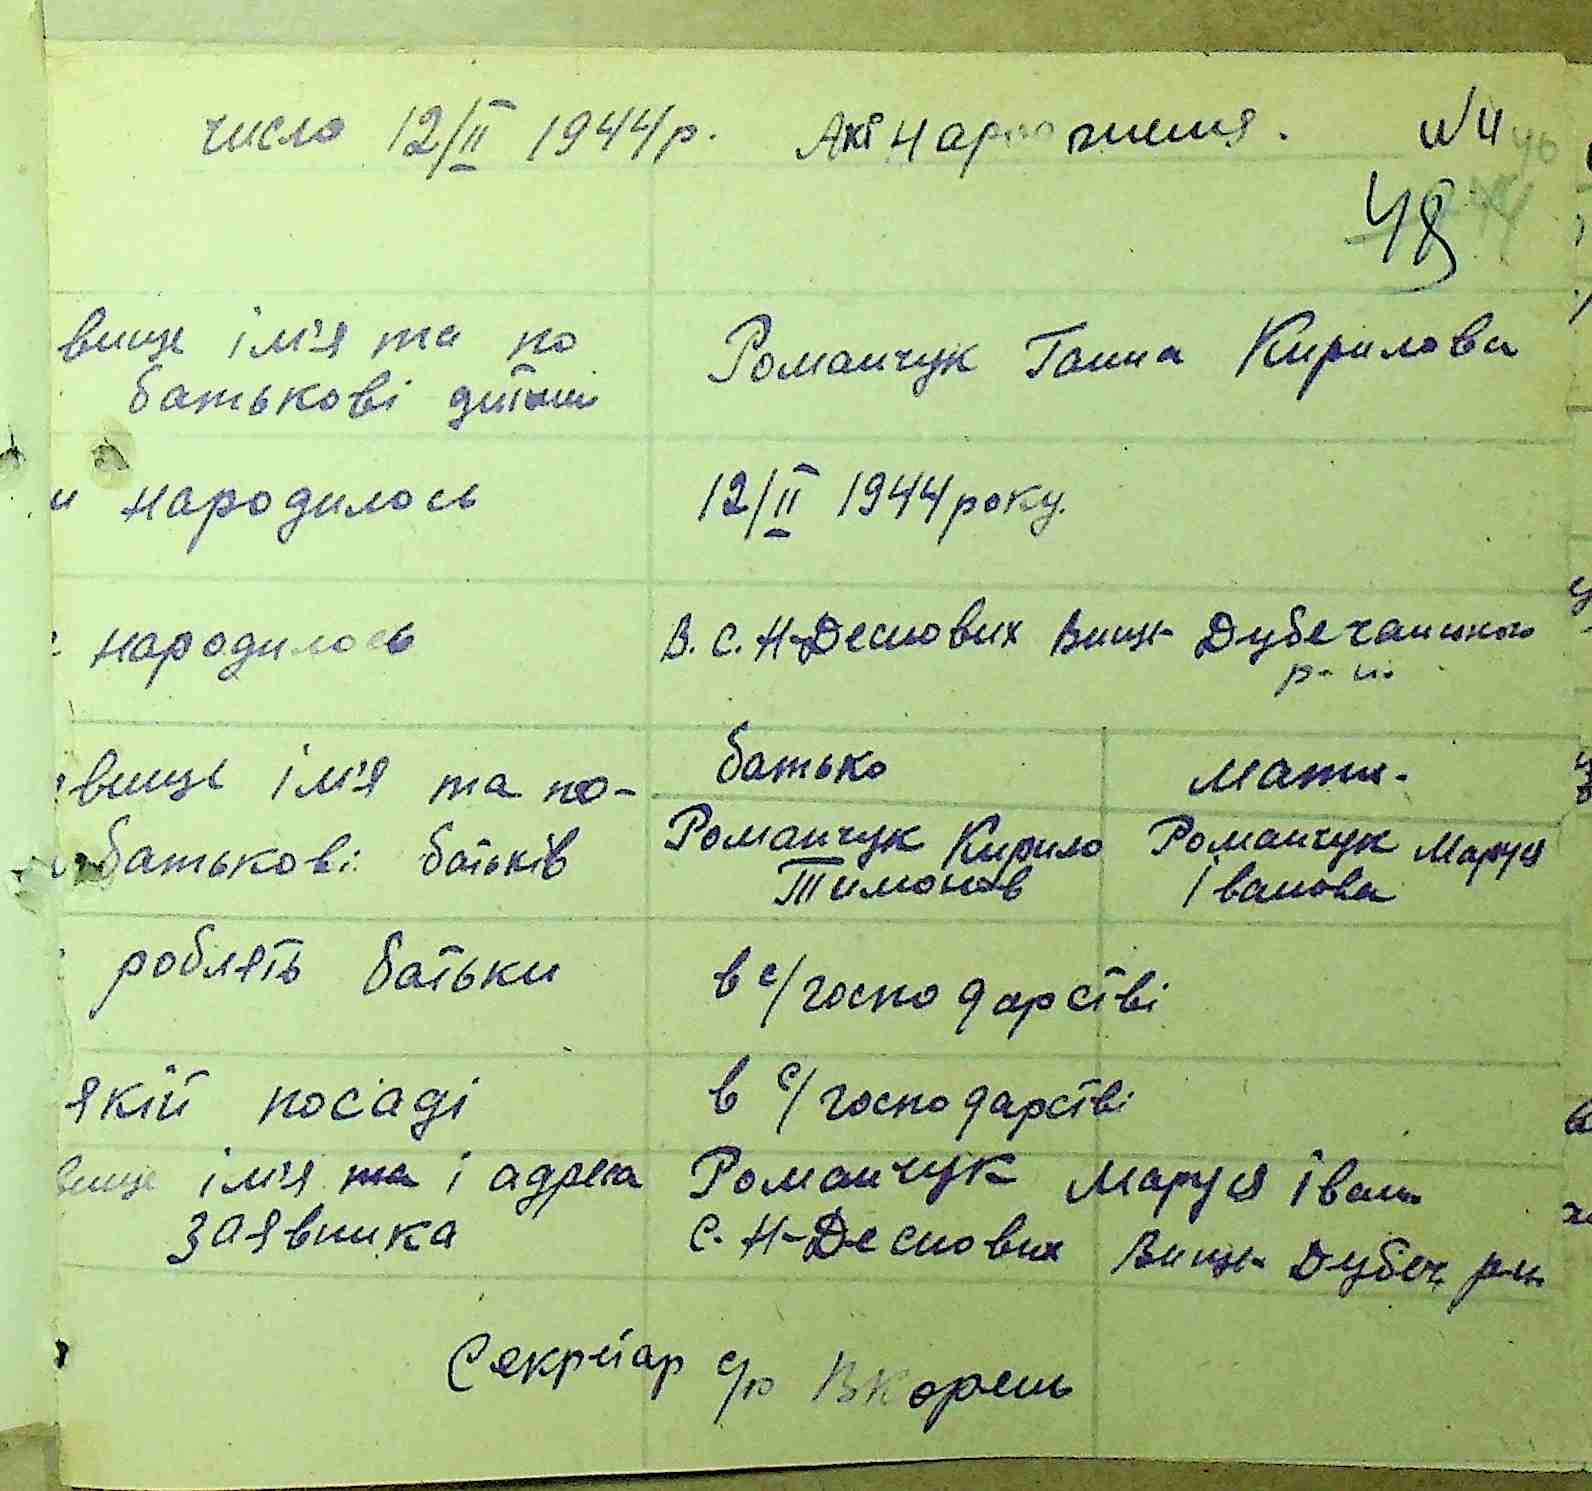 число 12/II 1944 р. Акт народження. №4
48
вище ім'я та по
батькові дитини
Романчук Ганна Кирилова
народилось
12/II 1944 року.
народилось
В. с. Н-Деснових Вище- Дубечанського
р-н.
вище ім'я та по-
батькові батьків
батько
мати.
Романчук Кирило
Тимонов
Романчук Маруся
Іванова
роблять батьки
в с/господарстві
якій посаді
в с/господарстві
вище ім'я та і адреса
заявника
Романчук Маруся Іван
с. Н-Деснових Вище- Дубеч. р-н.
Секретар с/р ВКорень